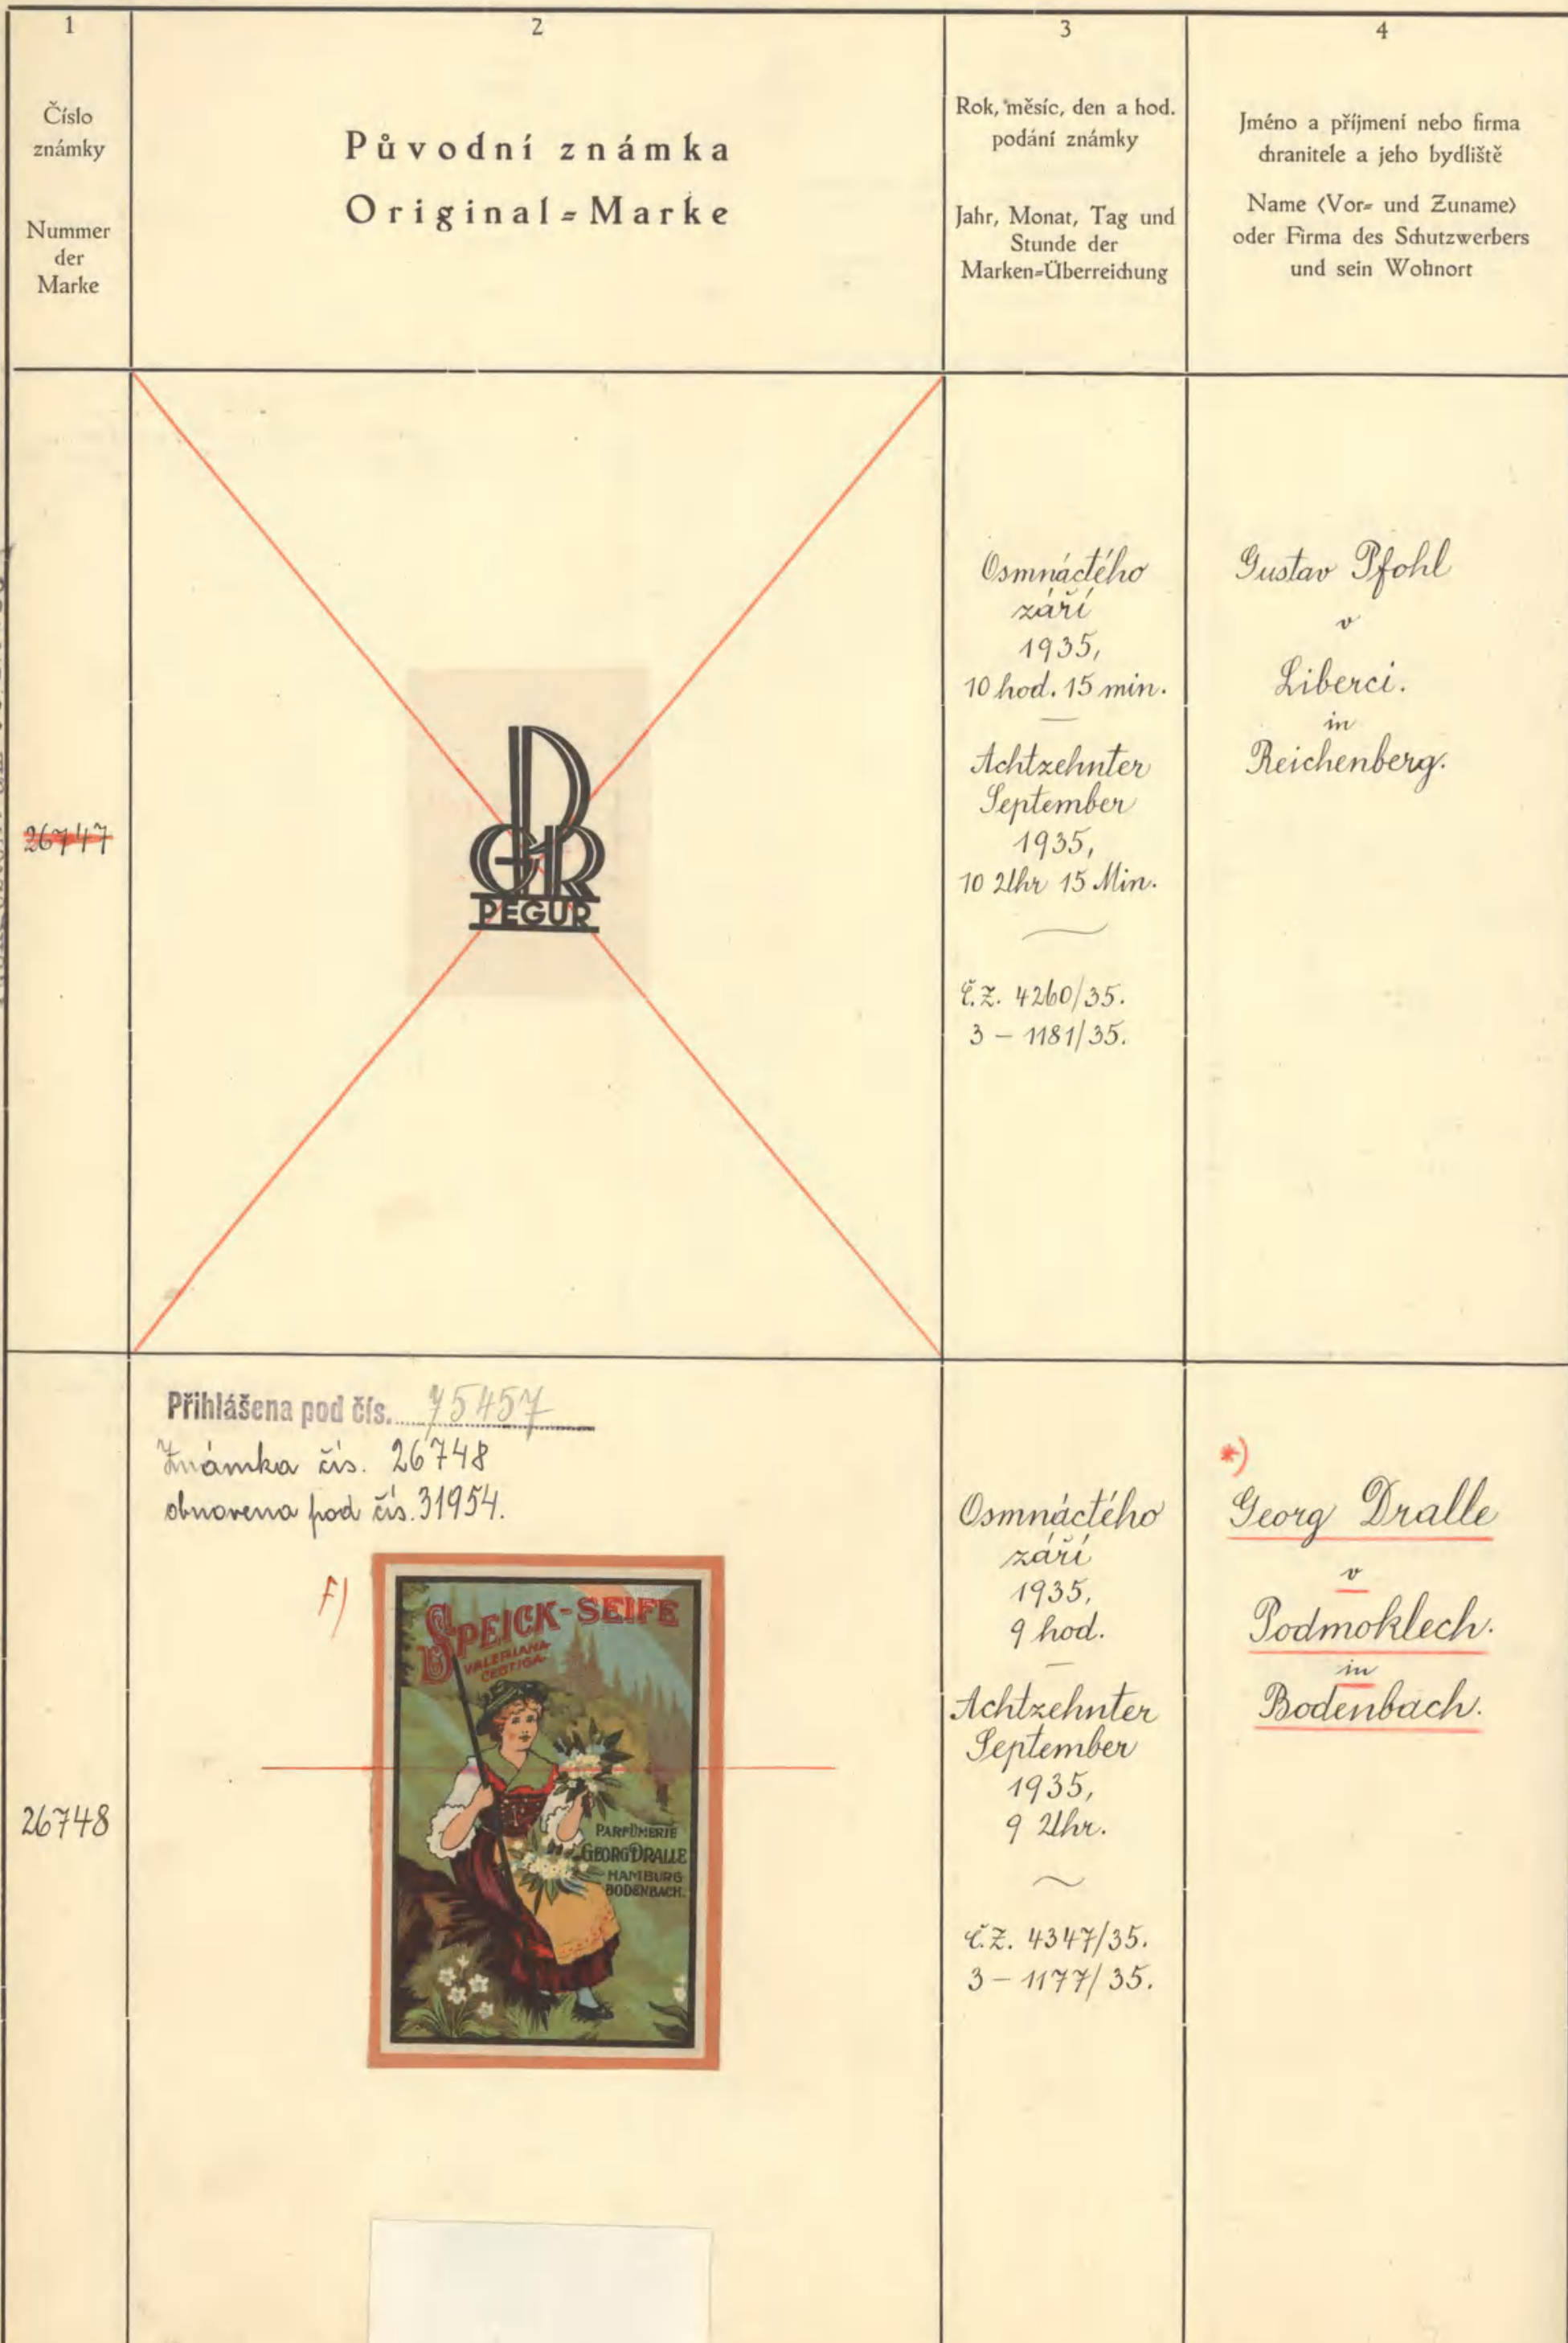 1
Číslo
známky
Nummer
der
Marke
2
Původní známka
Original-Marke
3
Rok, měsíc, den a hod.
podání známky
Jahr, Monat, Tag und
Stunde der
Marken-Überreichung
4
Jméno a příjmení nebo firma
chranitele a jeho bydliště
Name (Vor- und Zuname)
oder Firma des Schutzwerbers
und sein Wohnort
26747
PGR
PEGUR
Osmnáctého
září
1935,
10 hod. 15 min.
Achtzehnter
September
1935,
10 Uhr 15 Min.
Č.Z. 4260/35.
3 – 1181/35.
Gustav Pfohl
v
Liberci.
in
Reichenberg.
26748
Přihlášena pod čís. 75457
Známka čís. 26748
obnovena pod čís. 31954.
F)
SPEICK-SEIFE
VALERIANA
CELTICA
PARFÜMERIE
GEORG DRALLE
HAMBURG
BODENBACH.
Osmnáctého
září
1935,
9 hod.
Achtzehnter
September
1935,
9 Uhr.
Č.Z. 4347/35.
3 – 1177/35.
*)
Georg Dralle
v
Podmoklech.
in
Bodenbach.